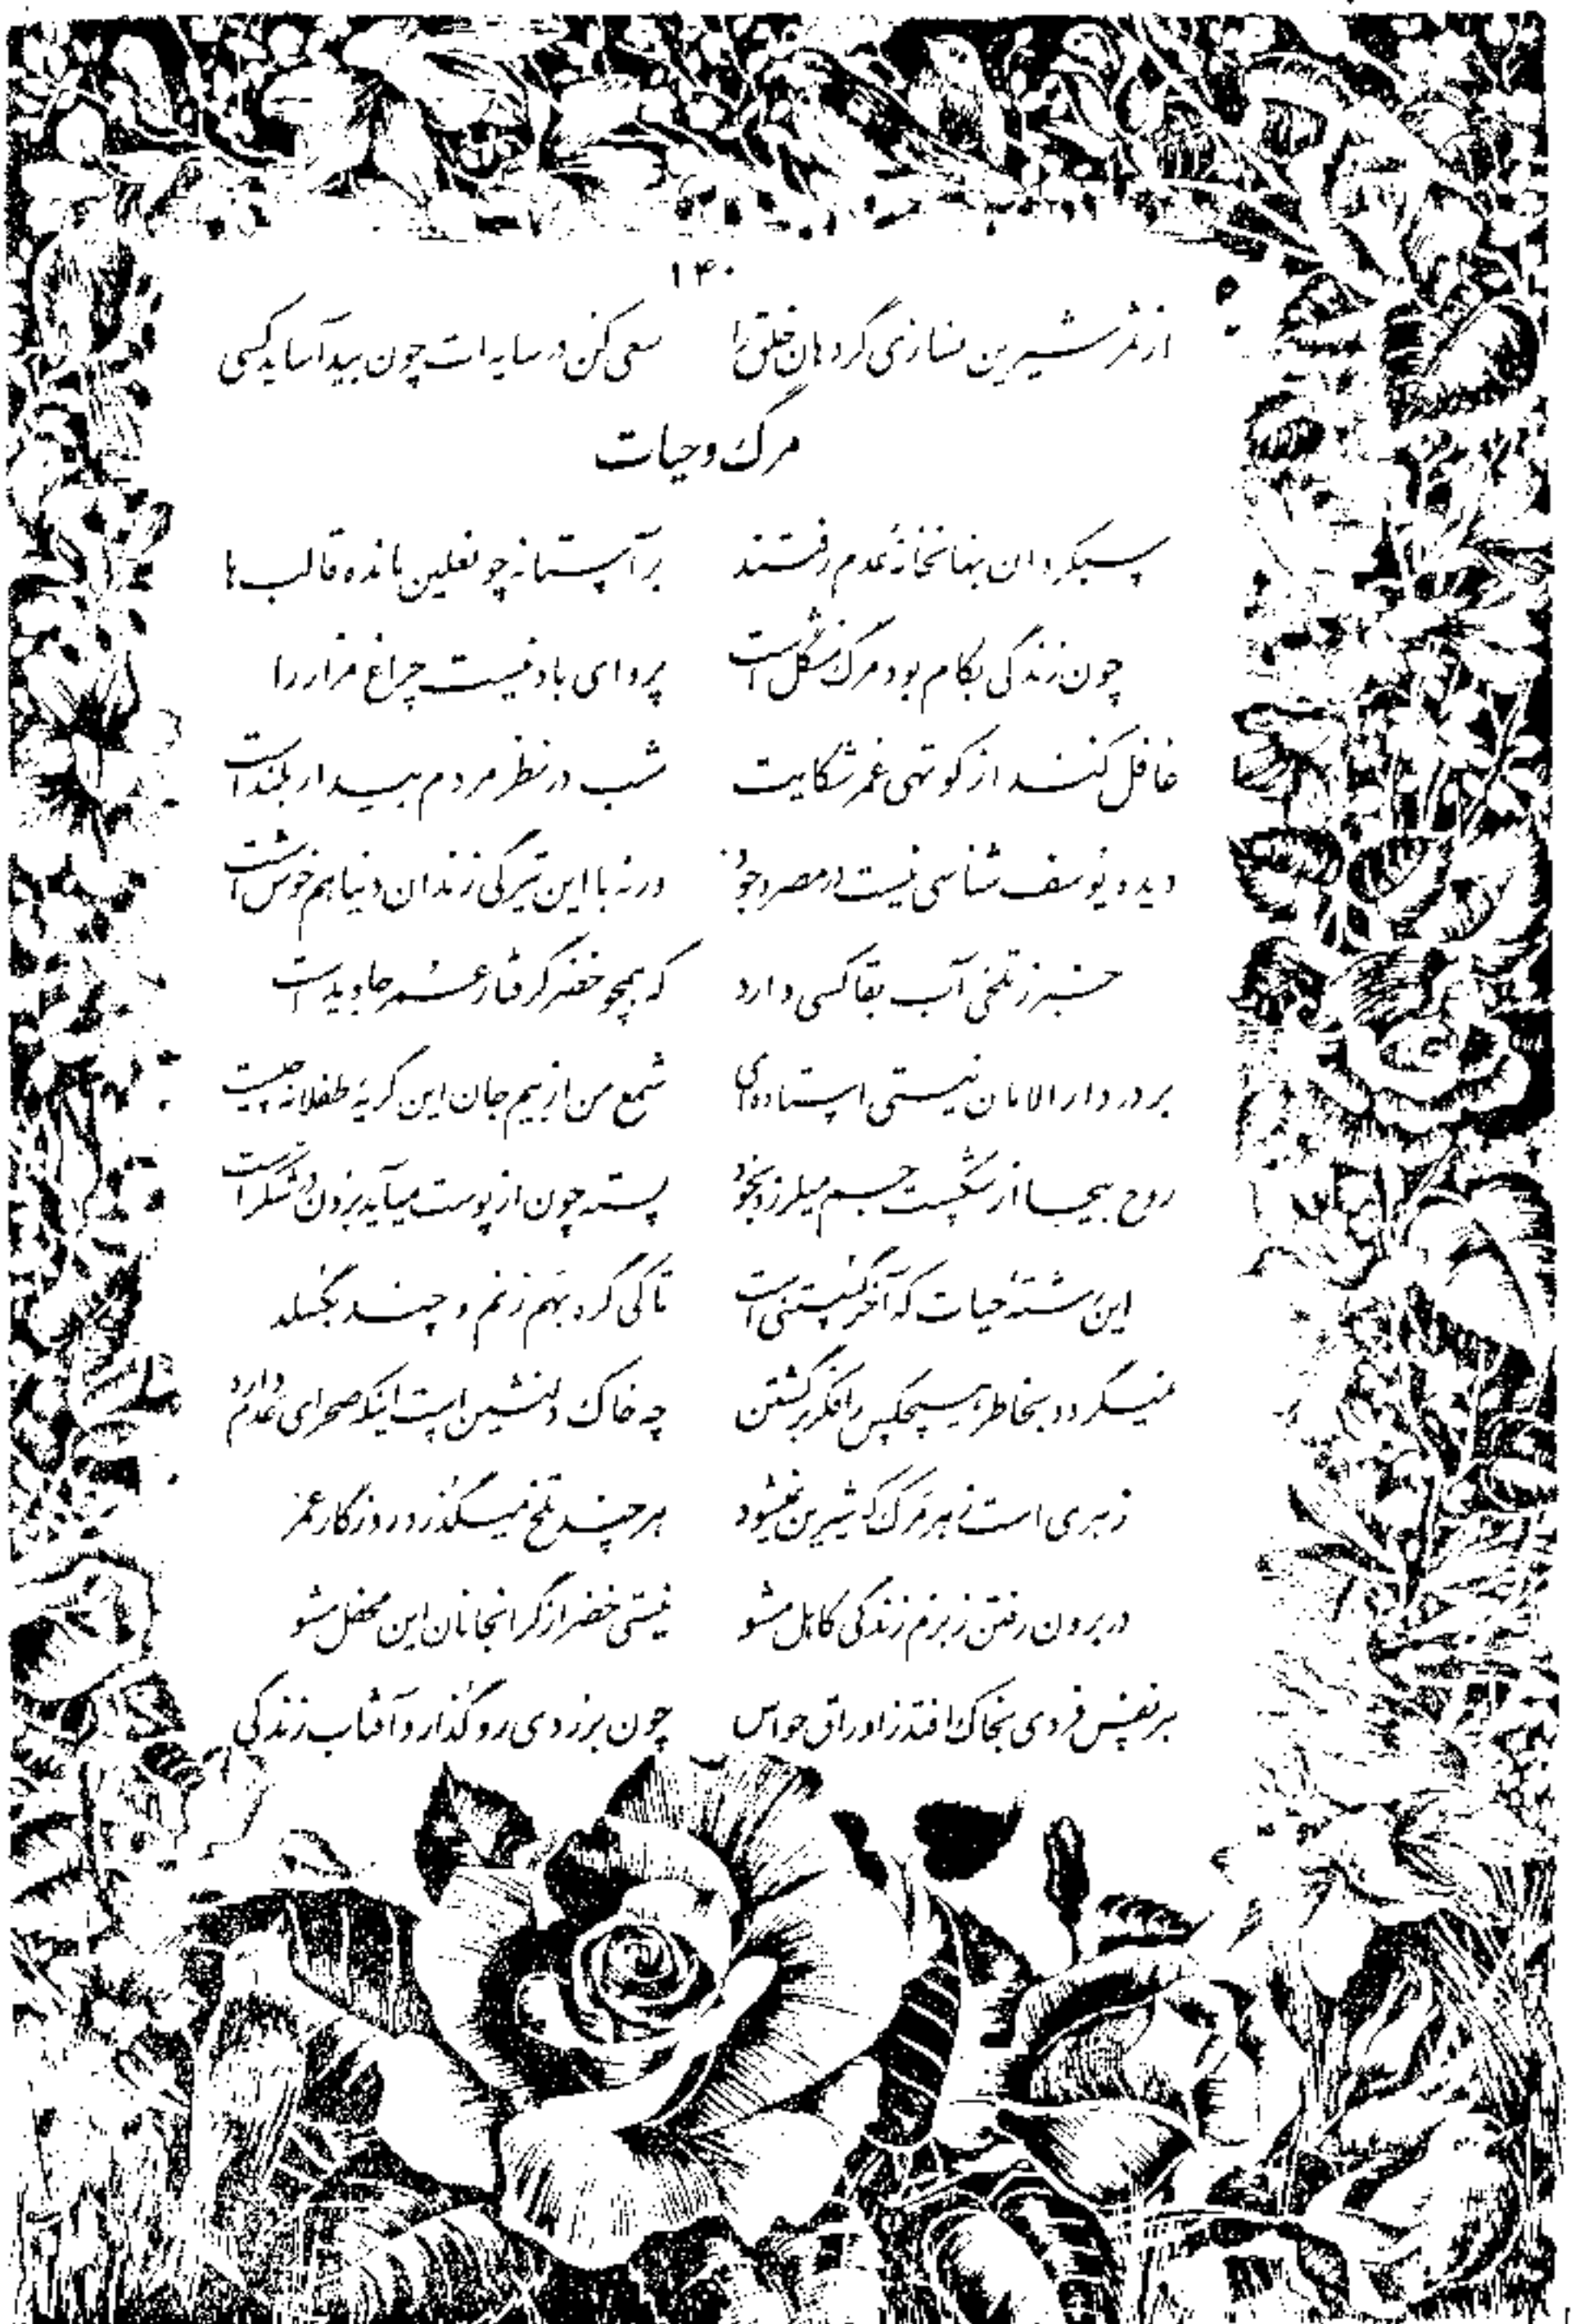 ۱۴۰
از ثمر شیرین نسازی گر دهان خلق را    سعی کن در سایه‌ات چون بید آساید کسی
مرگ و حیات
سبکروان بنهانخانهٔ عدم رفتند    بر آستانه چو نعلین مانده قالب‌ها
چون زندگی بکام بود مرگ مشکل است    پروای باد نیست چراغ مزار را
غافل کند از کوتهی عمر شکایت    شب در نظر مردم بیدار بلند است
دیده یوسف شناسی نیست در مصر وجود    ورنه با این تیرگی زندان دنیا هم خوش است
خبر ز تلخی آب بقا کسی دارد    که همچو خضر گرفتار عمر جاوید است
بر در دارالامان نیستی استاده‌ای    شمع من از بیم جان این گریهٔ طفلانه چیست
روح بیجا از شکست جسم میلرزد بخود    پسته چون از پوست میآید برون در شکر است
این رشتهٔ حیات که آخر گسستنی است    تا کی گره بهم زنم و چند بگسلد
نمیگردد بخاطر هیچکس را فکر برگشتن    چه خاک دلنشین است اینکه صحرای عدم دارد
زهری است زهر مرگ که شیرین نمیشود    هر چند تلخ میگذرد روزگار عمر
در برون رفتن ز بزم زندگی کاهل مشو    نیستی خضر از گرانجانان این محفل مشو
هر نفس فردی بخاک افتد ز اوراق حواس    چون بزردی رو گذارد آفتاب زندگی